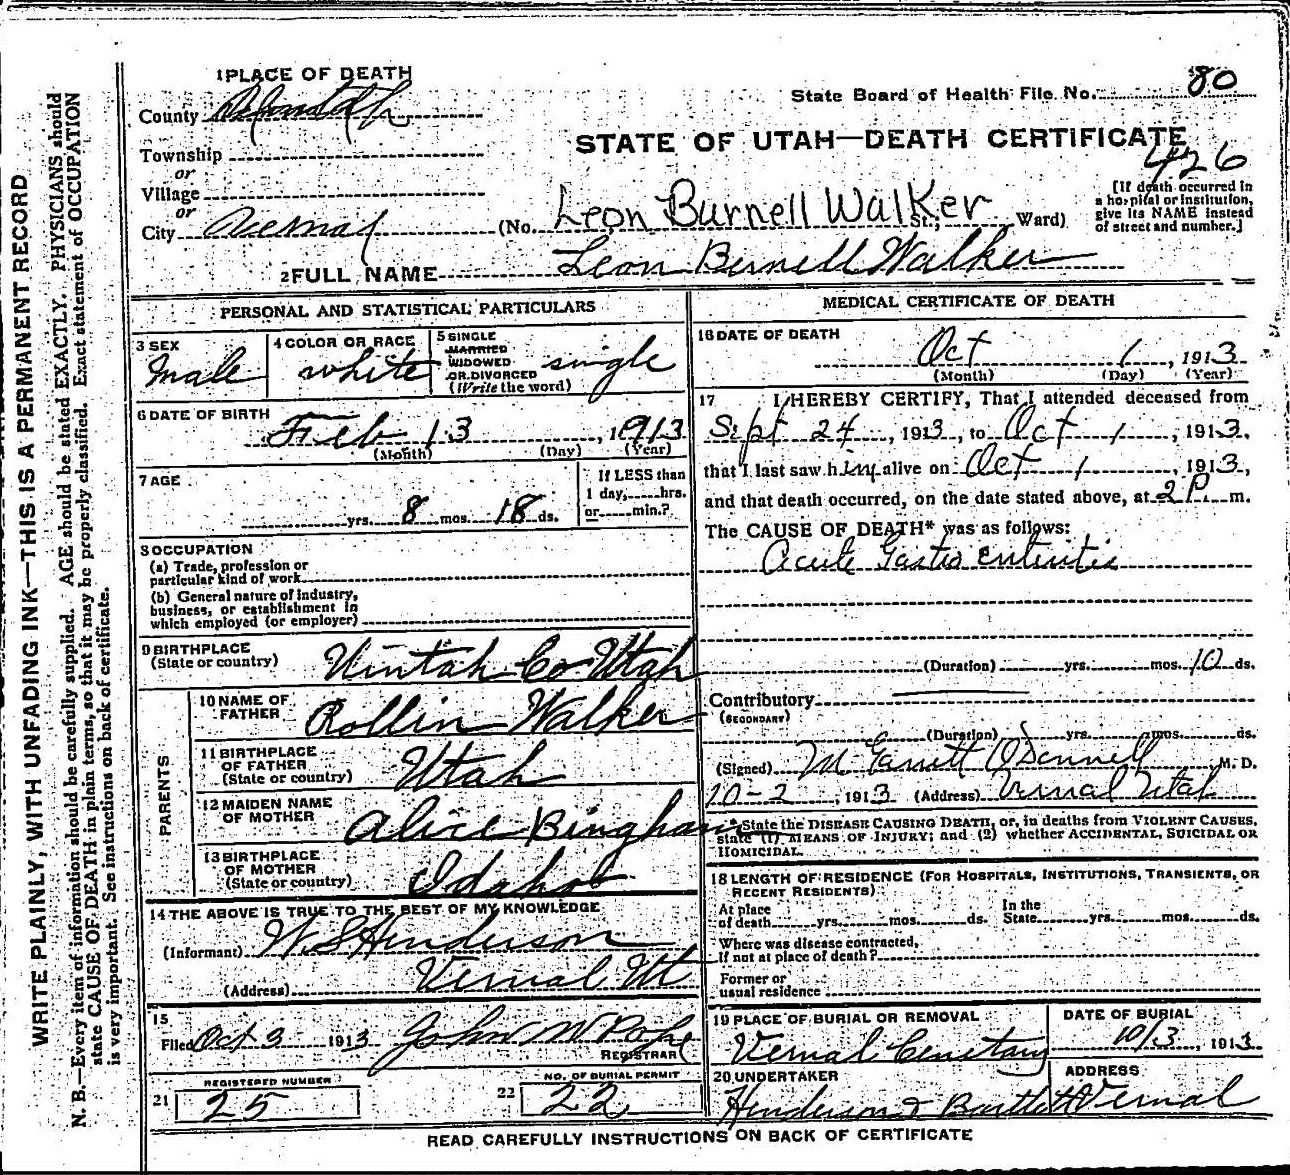 1 PLACE OF DEATH
County
State Board of Health File No. 80
Township
or
Village
or
City Vernal
STATE OF UTAH—DEATH CERTIFICATE
426
(No. Leon Burnell Walker St.; Ward)
[If death occurred in
a hospital or institution,
give its NAME instead
of street and number.]
2 FULL NAME Leon Bernell Walker
WRITE PLAINLY, WITH UNFADING INK—THIS IS A PERMANENT RECORD
N. B.—Every item of information should be carefully supplied. AGE should be stated EXACTLY. PHYSICIANS should
state CAUSE OF DEATH in plain terms, so that it may be properly classified. Exact statement of OCCUPATION
is very important. See instructions on back of certificate.
PERSONAL AND STATISTICAL PARTICULARS
3 SEX
Male
4 COLOR OR RACE
white
5 SINGLE
MARRIED
WIDOWED
OR DIVORCED
(Write the word)
single
6 DATE OF BIRTH
Feb 13, 1913
(Month) (Day) (Year)
7 AGE
yrs. 8 mos. 18 ds.
If LESS than
1 day, hrs.
or min.?
8 OCCUPATION
(a) Trade, profession or
particular kind of work
(b) General nature of industry,
business, or establishment in
which employed (or employer)
9 BIRTHPLACE
(State or country) Uintah Co Utah
PARENTS
10 NAME OF
FATHER Rollin Walker
11 BIRTHPLACE
OF FATHER
(State or country) Utah
12 MAIDEN NAME
OF MOTHER Alice Bingham
13 BIRTHPLACE
OF MOTHER
(State or country) Idaho
14 THE ABOVE IS TRUE TO THE BEST OF MY KNOWLEDGE
(Informant) W. S Henderson
(Address) Vernal Ut
15
Filed Oct 3 1913 John W Pope
REGISTRAR
21 REGISTERED NUMBER
25
22 NO. OF BURIAL PERMIT
22
MEDICAL CERTIFICATE OF DEATH
16 DATE OF DEATH
Oct 1, 1913
(Month) (Day) (Year)
17 I HEREBY CERTIFY, That I attended deceased from
Sept 24, 1913, to Oct 1, 1913,
that I last saw him alive on Oct 1, 1913,
and that death occurred, on the date stated above, at 2 P. m.
The CAUSE OF DEATH* was as follows:
Acute Gastro enteritis
(Duration) yrs. mos. 10 ds.
Contributory
(SECONDARY)
(Duration) yrs. mos. ds.
(Signed) M Garrett O'Donnell M. D.
10-2, 1913 (Address) Vernal Utah
* State the DISEASE CAUSING DEATH, or, in deaths from VIOLENT CAUSES,
state (1) MEANS OF INJURY; and (2) whether ACCIDENTAL, SUICIDAL OR
HOMICIDAL.
18 LENGTH OF RESIDENCE (FOR HOSPITALS, INSTITUTIONS, TRANSIENTS, OR
RECENT RESIDENTS)
At place
of death yrs. mos. ds.
In the
State yrs. mos. ds.
Where was disease contracted,
if not at place of death?
Former or
usual residence
19 PLACE OF BURIAL OR REMOVAL
Vernal Cemetary
DATE OF BURIAL
10/3, 1913
20 UNDERTAKER
Henderson & Bartlett
ADDRESS
Vernal
READ CAREFULLY INSTRUCTIONS ON BACK OF CERTIFICATE